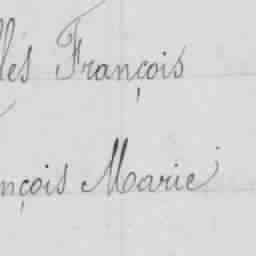 les François
nçois Marie